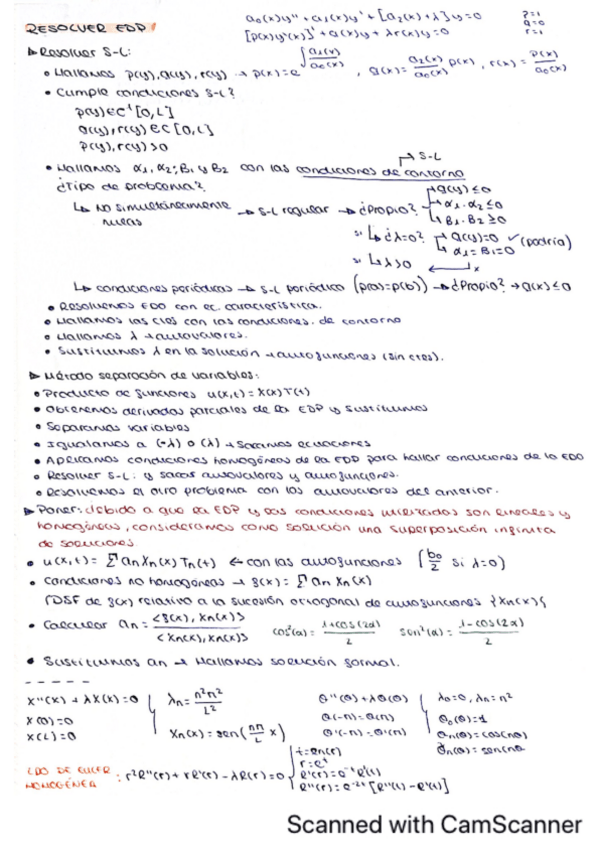 RESOLVER EDP
a₀(x)y'' + a₁(x)y' + [a₂(x) + λ]y = 0
[p(x)y'(x)]' + q(x)y + λr(x)y = 0
p=1
q=0
r=1
▸ Resolver S-L:
• Hallamos p(x), q(x), r(x) → p(x) = e^∫a₁(x)/a₀(x), q(x) = a₂(x)/a₀(x) p(x), r(x) = p(x)/a₀(x)
• Cumple condiciones S-L?
p(x) ∈ C¹[0,L]
q(x), r(x) ∈ C[0,L]
p(x), r(x) > 0
• Hallamos α₁, α₂; B₁ y B₂ con las condiciones de contorno → S-L
¿Tipo de problema?
↳ No simultáneamente nulas → S-L regular → ¿Propio?
q(x) ≤ 0
α₁·α₂ ≤ 0
B₁·B₂ ≥ 0
si ↳ ¿λ=0? q(x)=0 ✓ (podría)
α₁=B₁=0
si ↳ λ>0
↳ condiciones periódicas → S-L periódico (p(a)=p(b)) → ¿Propio? → q(x) ≤ 0
• Resolvemos EDO con ec. característica.
• Hallamos las ctes con las condiciones. de contorno
• Hallamos λ → autovalores.
• Sustituimos λ en la solución → autofunciones (sin ctes).
▸ Método separación de variables:
• Producto de funciones u(x,t) = X(x)T(t)
• Obtenemos derivadas parciales de la EDP y sustituimos
• Separamos variables
• Igualamos a (-λ) o (λ) → Sacamos ecuaciones
• Aplicamos condiciones homogéneas de la EDP para hallar condiciones de la EDO
• Resolver S-L: y sacar autovalores y autofunciones.
• Resolvemos el otro problema con los autovalores del anterior.
▸ Poner: debido a que la EDP y las condiciones utilizadas son lineales y
homogéneas, consideramos como solución una superposición infinita
de soluciones
• u(x,t) = Σ aₙXₙ(x)Tₙ(t) ← con las autofunciones (b₀/2 si λ=0)
• Condiciones no homogéneas → g(x) = Σ aₙ Xₙ(x)
(DSF de g(x) relativo a la sucesión ortogonal de autofunciones {Xₙ(x)}
• Calcular aₙ = <g(x), Xₙ(x)> / <Xₙ(x), Xₙ(x)> cos²(α) = 1+cos(2α)/2 sen²(α) = 1-cos(2α)/2
• Sustituimos aₙ → Hallamos solución formal.
X''(x) + λX(x) = 0
X(0) = 0
X(L) = 0
λₙ = n²π²/L²
Xₙ(x) = sen(nπ/L x)
Θ''(θ) + λΘ(θ)
Θ(-π) = Θ(π)
Θ'(-π) = Θ'(π)
λ₀=0, λₙ=n²
Θ₀(θ)=1
Θₙ(θ) = cos(nθ)
Θₙ(θ) = sen(nθ)
EDO DE EULER HOMOGÉNEA : r²R''(r) + rR'(r) - λR(r) = 0
t = ln(r)
r = eᵗ
R'(r) = e⁻ᵗR'(t)
R''(r) = e⁻²ᵗ[R''(t) - R'(t)]
Scanned with CamScanner